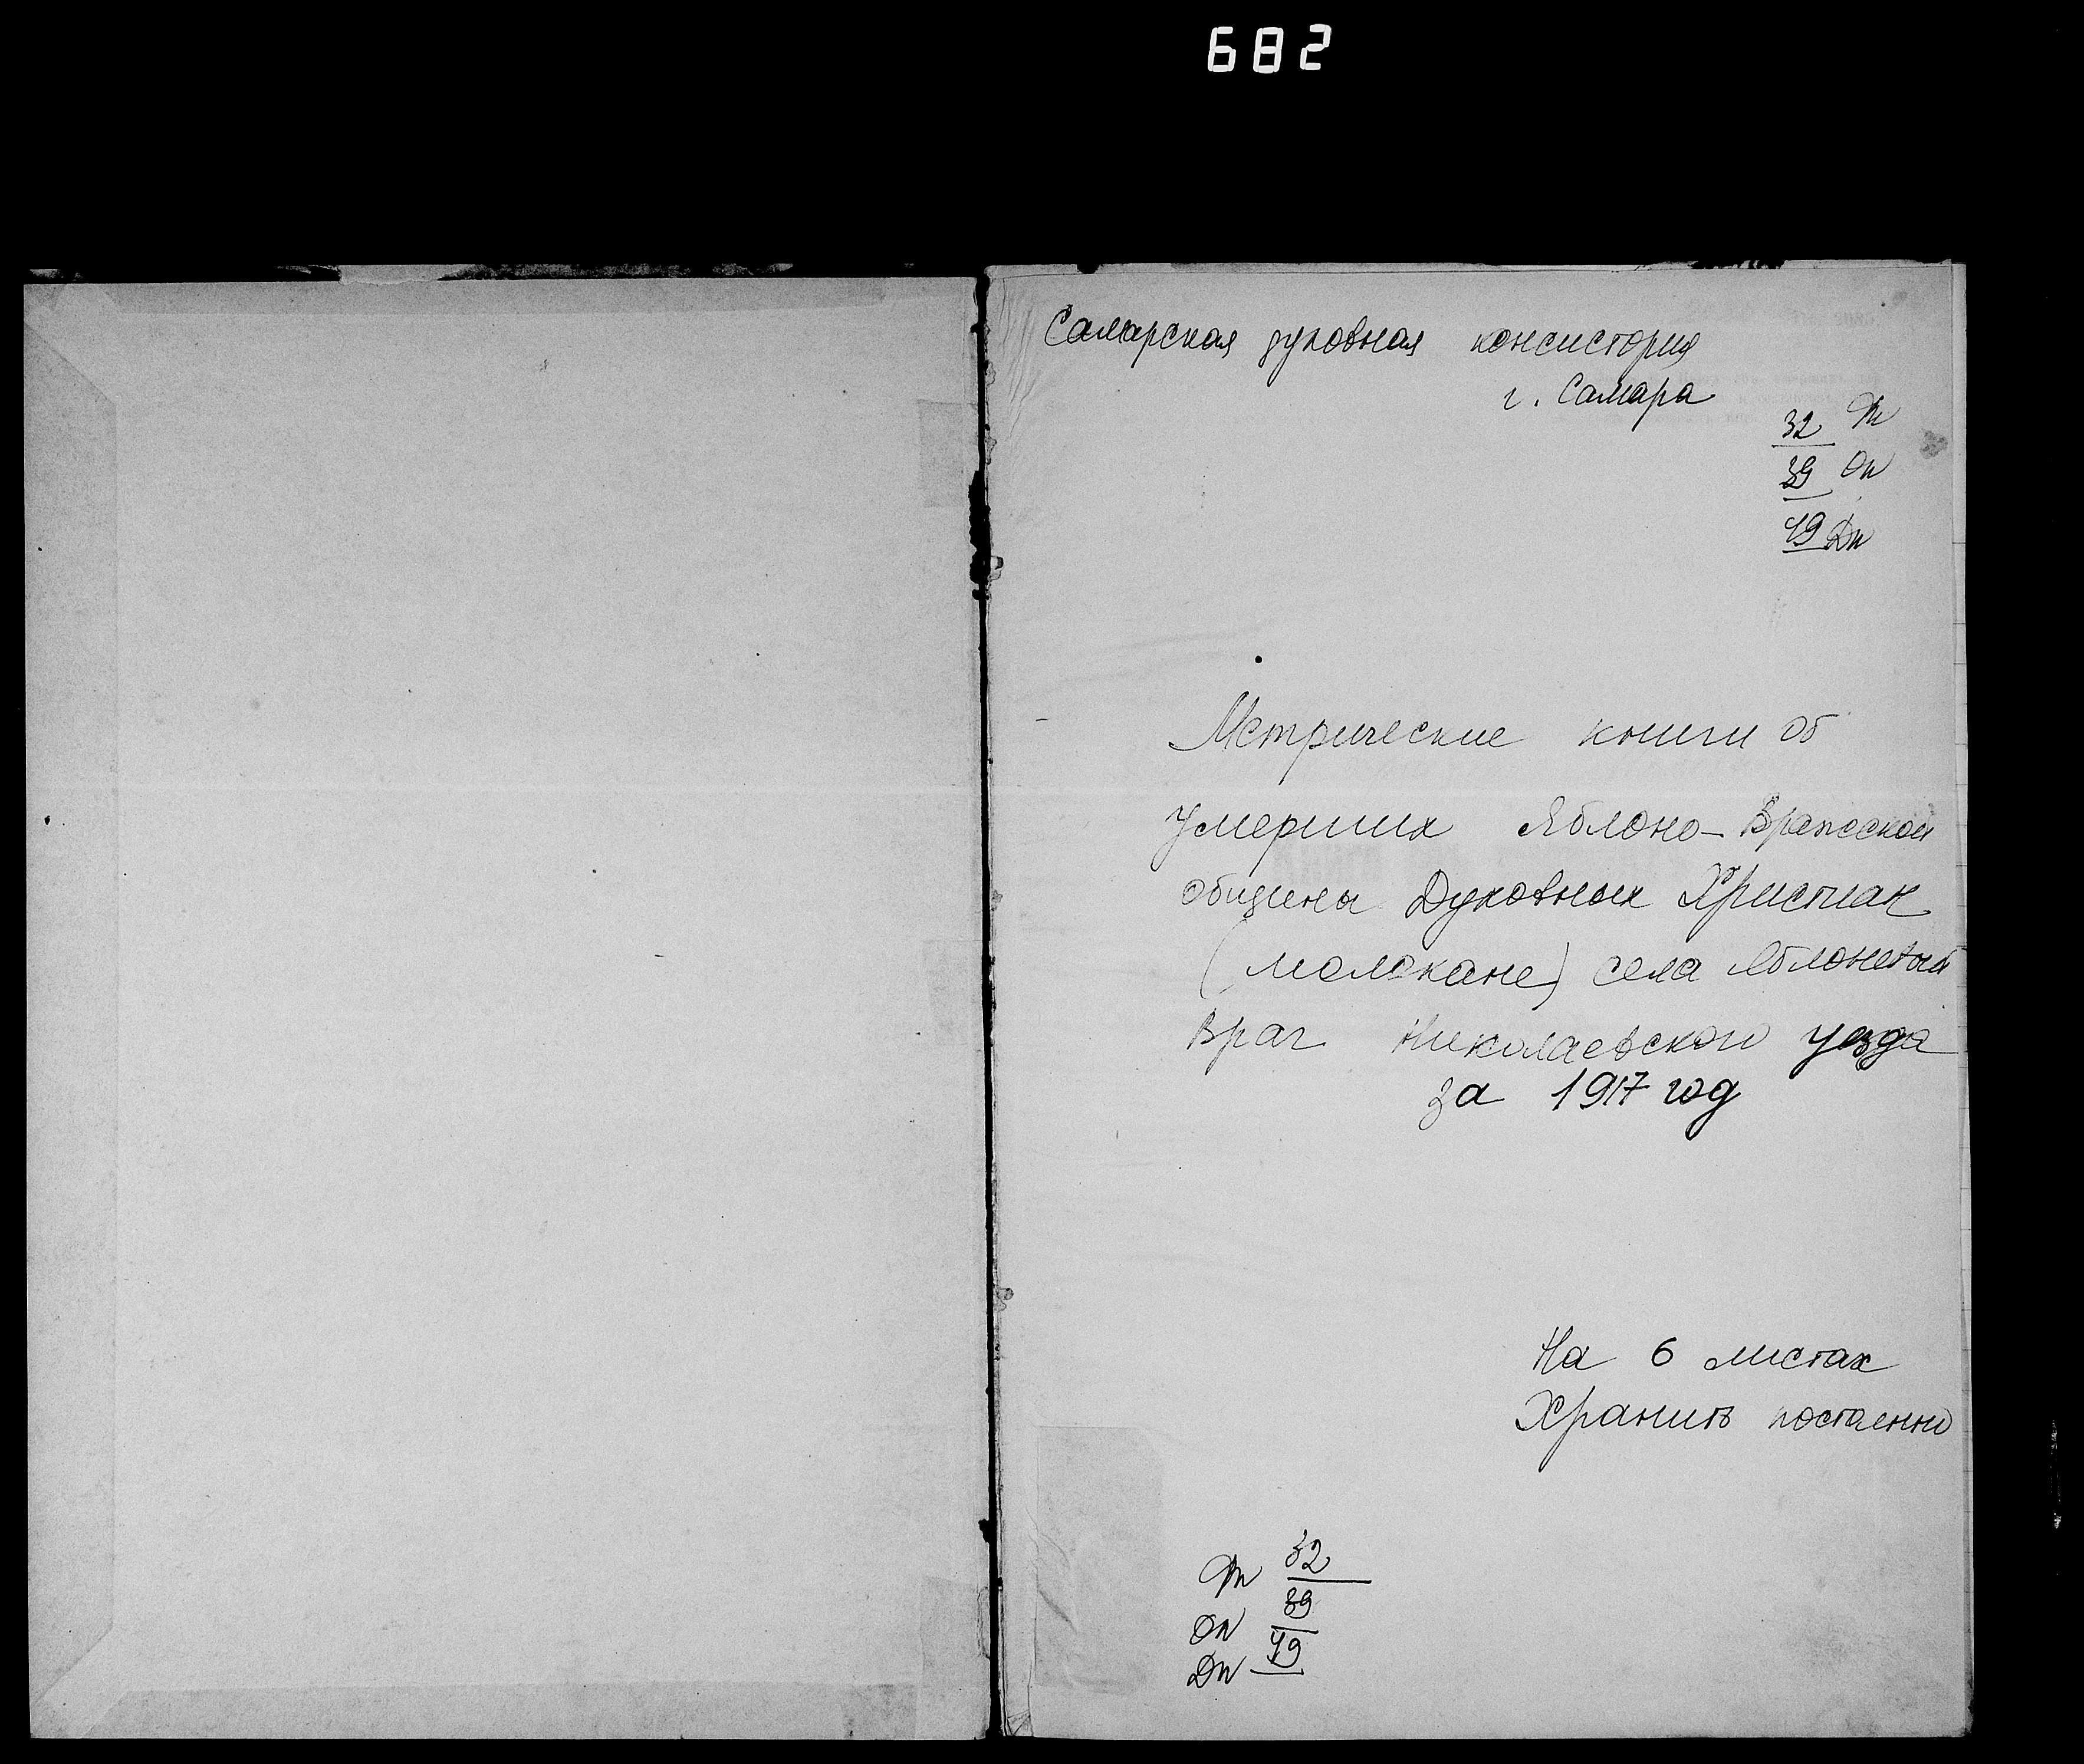 682
Самарская духовная консистория
г. Самара
32 Ф
39 Оп
49 Дп
Метрические книги об
умерших Яблоно-Вражской
общины Духовных Христиан
(молокане) села Яблоневый
Враг Николаевского уезда
за 1917 год
На 6 листах
Хранить постоенно
Ф 32
Оп 39
Дп 49